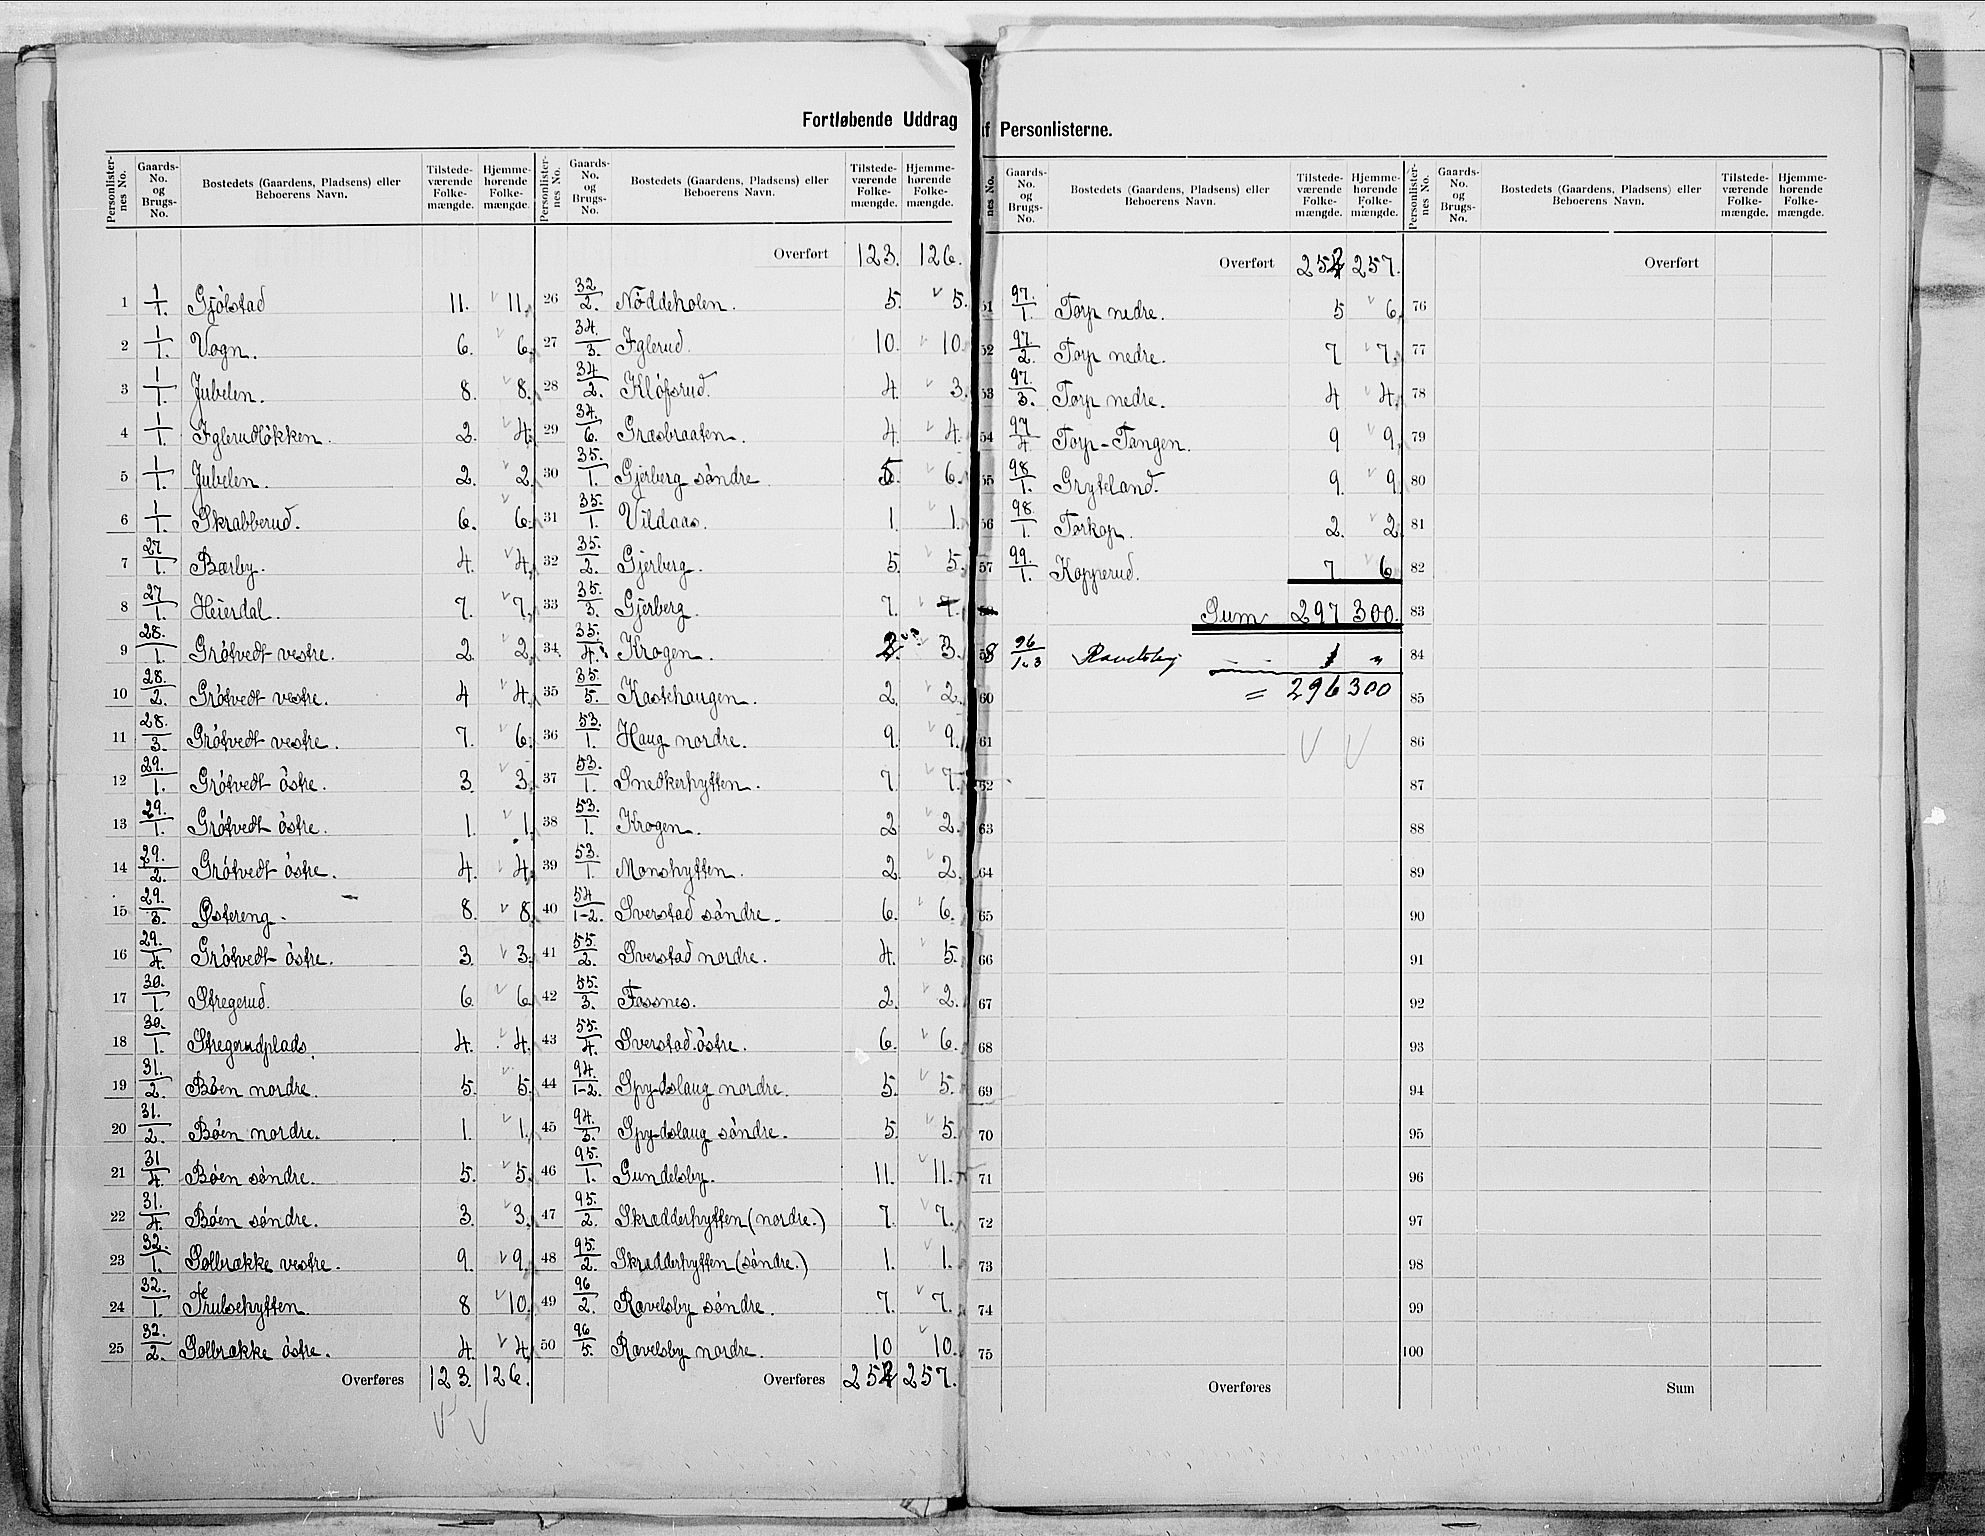 Fortløbende Uddrag af Personlisterne.
Personlister-nes No. | Gaards-No. og Brugs-No. | Bostedets (Gaardens, Pladsens) eller Beboerens Navn. | Tilstede-værende Folke-mængde. | Hjemme-hørende Folke-mængde.
1 1/1. Gjölstad 11. 11.
2 1/1. Vogn. 6. 6.
3 1/1. Jubelen. 8. 8.
4 1/1. Iglerudlökken. 2. 4.
5 1/1. Jubelen. 2. 2.
6 1/1. Skrabberud. 6. 6.
7 27/1. Bærby. 4. 4.
8 27/1. Heierdal. 7. 7.
9 28./1. Grötvedt vestre. 2. 2.
10 28./2. Grötvedt vestre. 4 4.
11 28./3. Grötvedt vestre. 7. 6.
12 29./1. Grötvedt östre. 3. 3.
13 29./1. Grötvedt östre. 1. 1.
14 29./2. Grötvedt östre. 4. 4.
15 29./3. Östereng. 8. 8.
16 29./4. Grötvedt östre. 3. 3.
17 30./1. Stregerud. 6. 6.
18 30./1. Stregerudplads. 4. 4.
19 31./2. Böen nordre. 5. 5.
20 31./2. Böen nordre. 1. 1.
21 31/4. Böen söndre. 5. 5.
22 31./4. Böen söndre. 3. 3.
23 32./1. Solbrække vestre. 9. 9.
24 32./1. Trulsehytten. 8 10.
25 32./2. Solbrække östre. 4. 4.
Overføres 123. 126.
Personlister-nes No. | Gaards-No. og Brugs-No. | Bostedets (Gaardens, Pladsens) eller Beboerens Navn. | Tilstede-værende Folke-mængde. | Hjemme-hørende Folke-mængde.
Overført 123. 126.
26 32/2. Nöddeholen. 5. 5.
27 34./3. Iglerud. 10. 10.
28 34/2. Klöfsrud. 4. 3.
29 34./6. Græsbraaten. 4. 4.
30 35./1. Gjerberg söndre 5. 6.
31 35./1. Vildaas. 1. 1.
32 35./2. Gjerberg. 5. 5.
33 35./3. Gjerberg. 7. 7.
34 35./4. Krogen. 2. 3.
35 35./5. Kastehaugen. 2. 2.
36 53./1. Haug nordre. 9. 9.
37 53./1. Snedkerhytten. 7 7.
38 53./1. Krogen. 2 2.
39 53./1. Monshytten. 2. 2.
40 54/1-2. Sverstad söndre. 6. 6.
41 55./2. Sverstad nordre. 4. 5.
42 55./3. Fossnes. 2. 2.
43 55./4. Sverstad östre. 6. 6.
44 94./1-2. Spydslaug nordre. 5. 5.
45 94./3. Spydslaug söndre. 5. 5.
46 95./1. Gundelsby. 11. 11.
47 95./2. Skrædderhytten (nordre.) 7. 7.
48 95./2. Skrædderhytten (söndre.) 1. 1.
49 96/2. Ravelsby söndre. 7. 7.
50 96/5. Ravelsby nordre. 10 10.
Overføres 252 257.
nes No. | Gaards-No. og Brugs-No. | Bostedets (Gaardens, Pladsens) eller Beboerens Navn. | Tilstede-værende Folke-mængde. | Hjemme-hørende Folke-mængde.
Overført 252 257.
51 97./1. Torp nedre. 5 6.
52 97./2. Torp nedre. 7 7.
53 97/3. Torp nedre. 4 4.
54 97/4 Torp-Tangen. 9 9.
55 98/1. Gryteland. 9. 9.
56 98./1. Torkop. 2. 2
57 99./1. Kopperud. 7. 6
Sum 297 300.
58 96/1 3 1 "
= 296 300
60
61
62
63
64
65
66
67
68
69
70
71
72
73
74
75
Overføres
Personlister-nes No. | Gaards-No. og Brugs-No. | Bostedets (Gaardens, Pladsens) eller Beboerens Navn. | Tilstede-værende Folke-mængde. | Hjemme-hørende Folke-mængde.
Overført
76
77
78
79
80
81
82
83
84
85
86
87
88
89
90
91
92
93
94
95
96
97
98
99
100
Sum